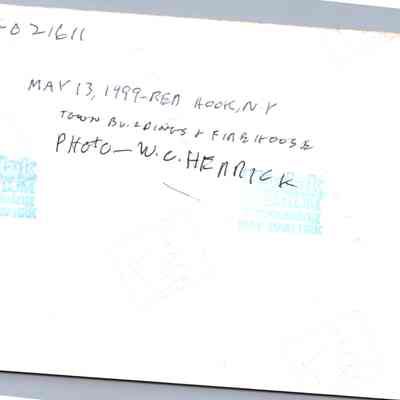 021611
MAY 13, 1999-RED HOOK, NY
TOWN BUILDINGS & FIREHOUSE
PHOTO-W.C. HERRICK